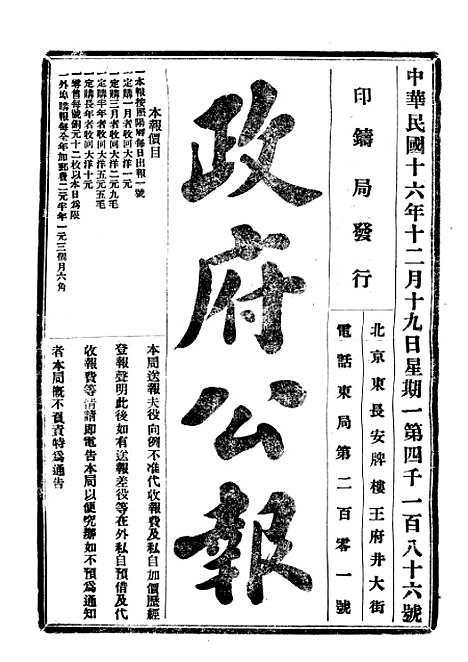 中華民國十六年十二月十九日星期一第四千一百八十六號
印鑄局發行
北京東長安牌樓王府井大街
電話東局第二百零一號
政府公報
本報價目
一本報按照陽曆每日出報一號
一定購一月者收回大洋一元
一定購三月者收回大洋二元九毛
一定購半年者收回大洋五元五毛
一定購長年者收回大洋十元
一零售每號銅元十二枚以本日爲限
一外埠購報每全年加郵費二元半年一元三個月六角
本局送報夫役向例不准代收報費及私自加價歷經
登報聲明此後如有送報差役等在外私自預借及代
收報費等情請即電告本局以便究辦如不預爲通知
者本局概不負責特爲通告